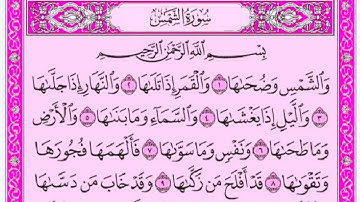 سُورَةُ الشَّمْسِ
بِسْمِ اللَّهِ الرَّحْمَٰنِ الرَّحِيمِ
وَالشَّمْسِ وَضُحَىٰهَا ١ وَالْقَمَرِ إِذَا تَلَىٰهَا ٢ وَالنَّهَارِ إِذَا جَلَّىٰهَا
٣ وَاللَّيْلِ إِذَا يَغْشَىٰهَا ٤ وَالسَّمَآءِ وَمَا بَنَىٰهَا ٥ وَالْأَرْضِ
وَمَا طَحَىٰهَا ٦ وَنَفْسٍ وَمَا سَوَّىٰهَا ٧ فَأَلْهَمَهَا فُجُورَهَا
وَتَقْوَىٰهَا ٨ قَدْ أَفْلَحَ مَن زَكَّىٰهَا ٩ وَقَدْ خَابَ مَن دَسَّىٰهَا